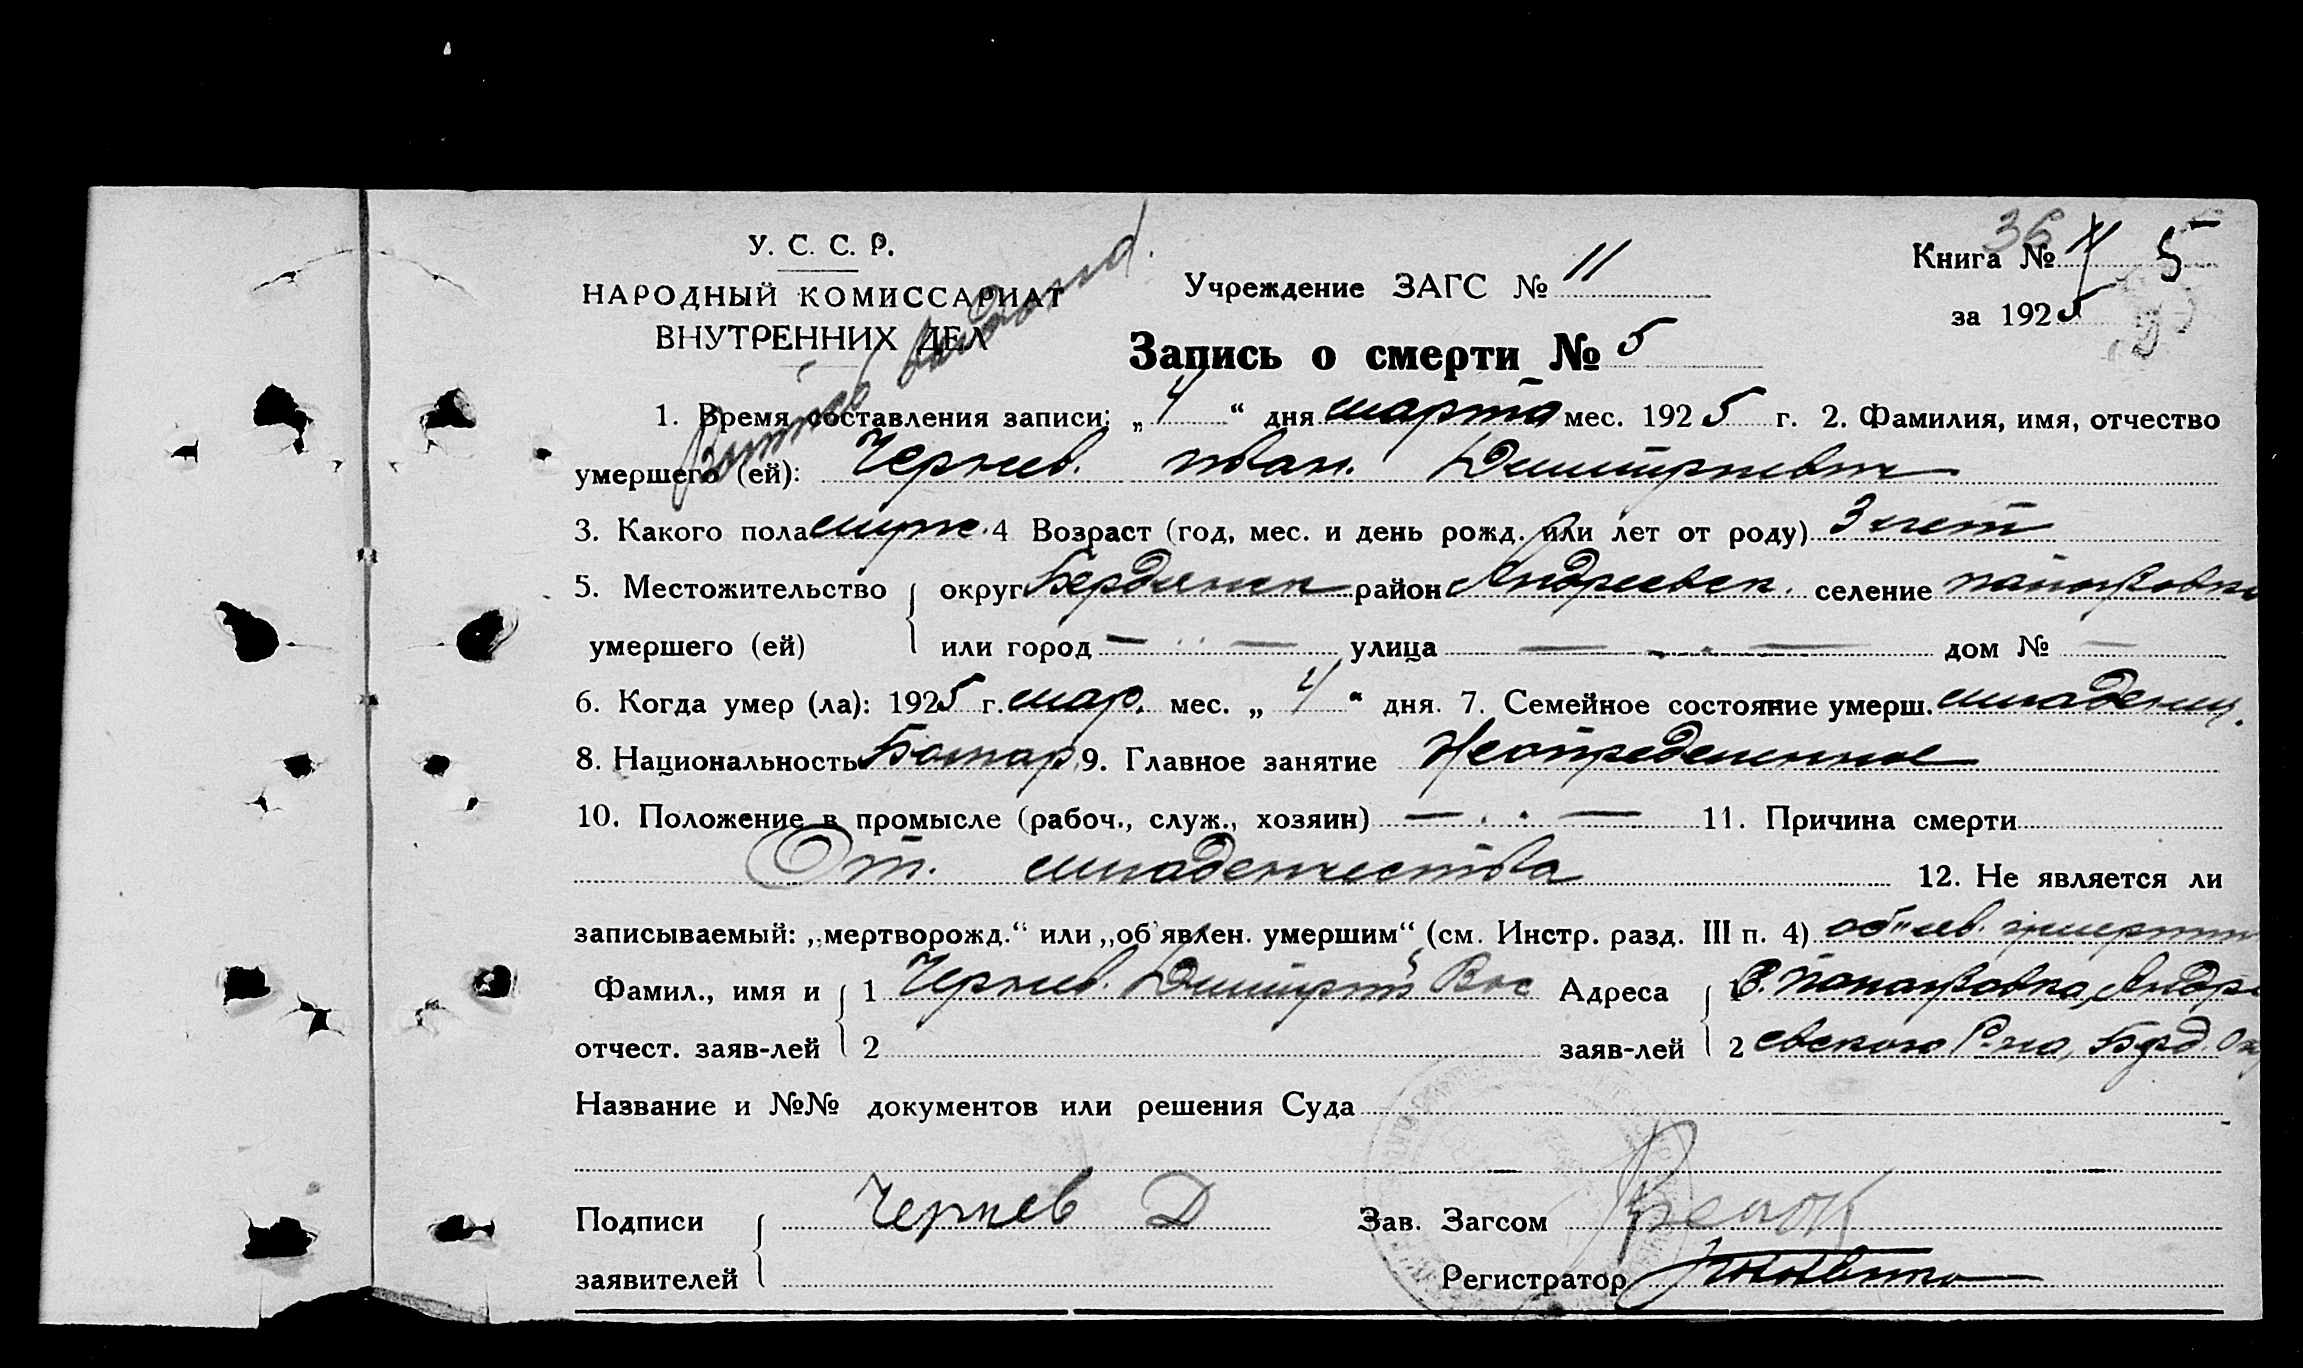 36
У. С. С. Р.
НАРОДНЫЙ КОМИССАРИАТ
ВНУТРЕННИХ ДЕЛ
Учреждение ЗАГС № 11
Книга № 5
за 1925
Запись о смерти № 5
1. Время составления записи: „4“ дня марта мес. 1925 г. 2. Фамилия, имя, отчество
умершего (ей): Чернев. Иван. Димитриевич
3. Какого пола муж. 4 Возраст (год, мес. и день рожд. или лет от роду) 3 лет
5. Местожительство округ Бердянск район Андреевск. селение
умершего (ей) или город — улица — дом № —
6. Когда умер (ла): 1925 г. мар. мес. „4“ дня. 7. Семейное состояние умерш. младенец.
8. Национальность Болгар 9. Главное занятие Неопределенное
10. Положение в промысле (рабоч., служ., хозяин) — 11. Причина смерти
От. младенчества 12. Не является ли
записываемый: „мертворожд.“ или „об'явлен. умершим“ (см. Инстр. разд. III п. 4)
Фамил., имя и 1 Чернев. Димитрий Вас Адреса
отчест. заяв-лей 2 заяв-лей 2 евского Р-на, Берд.
Название и №№ документов или решения Суда
Подписи Чернев Д Зав. Загсом
заявителей Регистратор